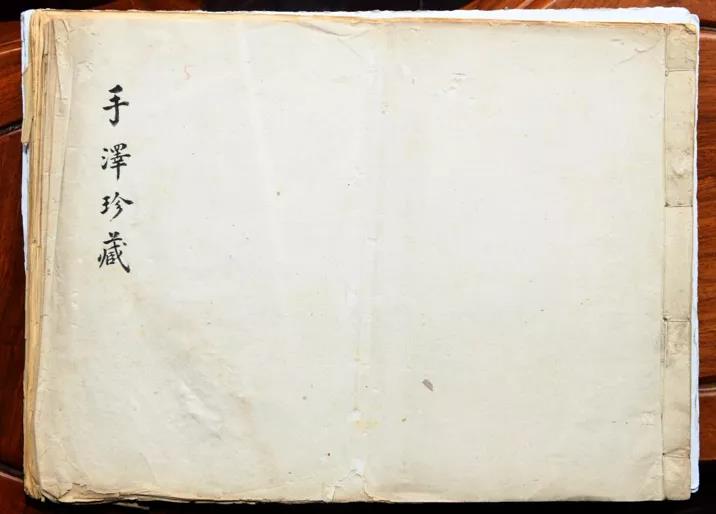 手澤珍藏